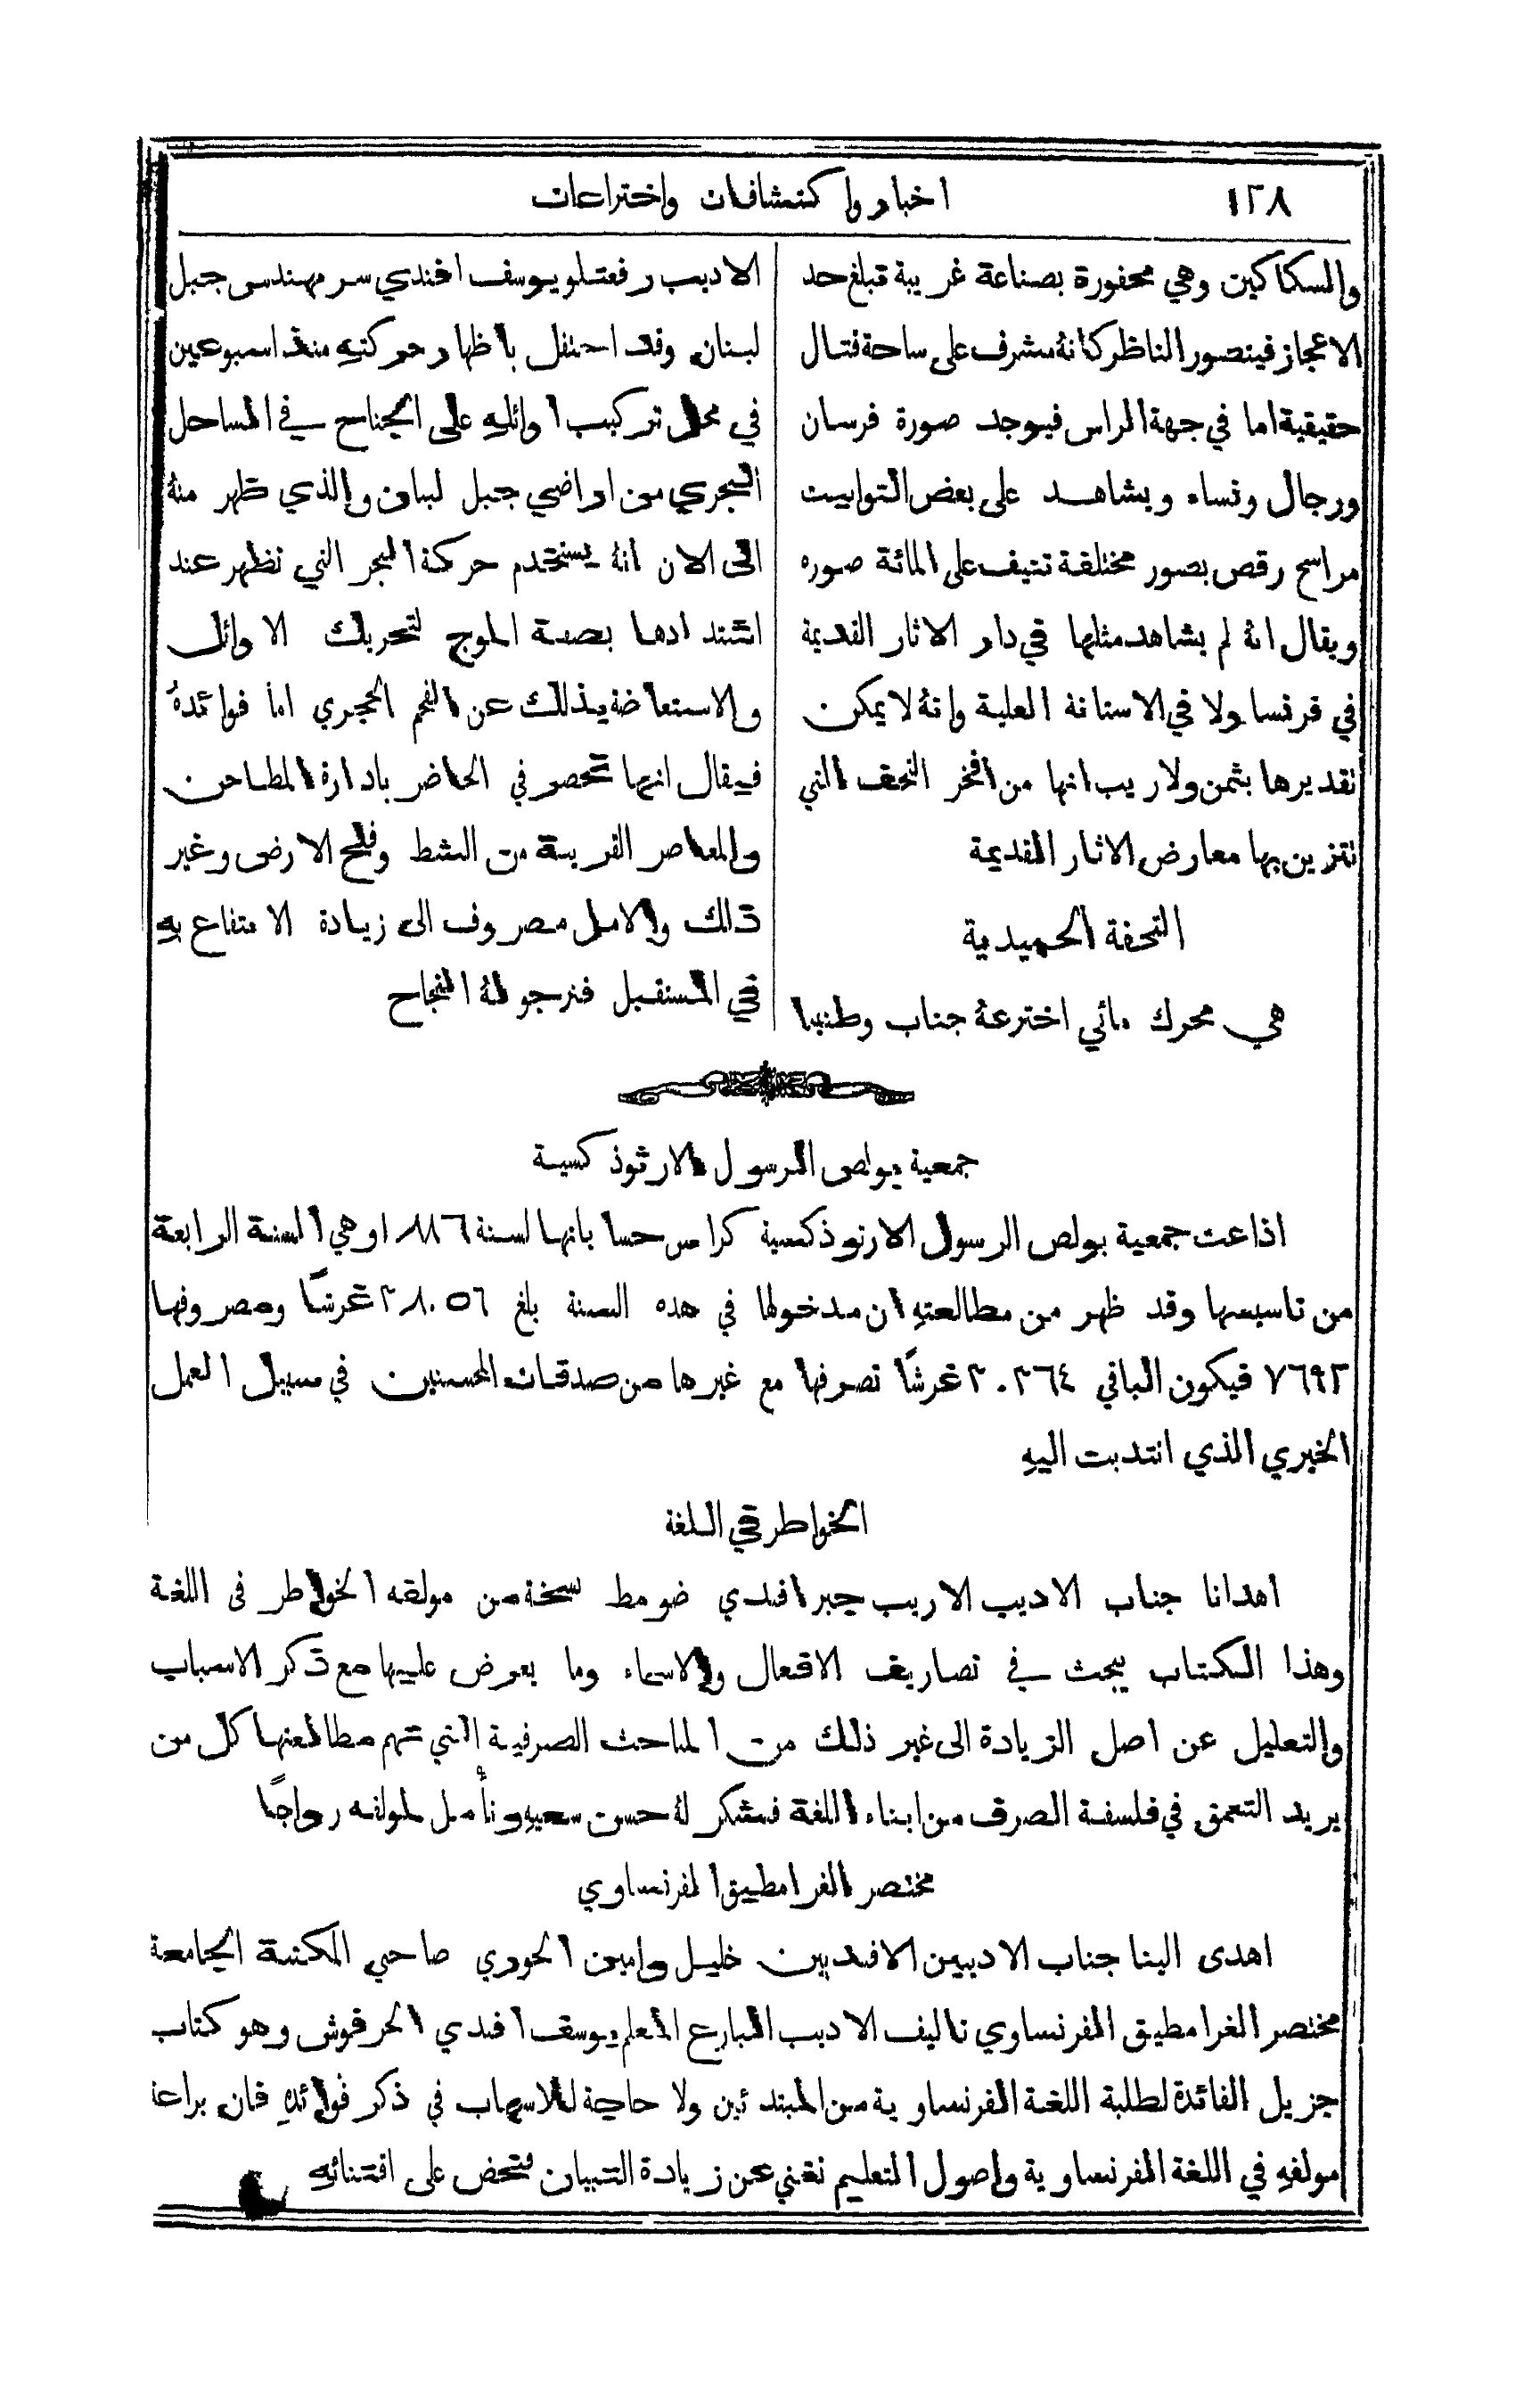 ١٢٨ اخبار واكتشافات واختراعات
والسكاكين وهي محفورة بصناعة غريبة تبلغ حد
الاعجاز فيتصور الناظر كانهُ مشرف على ساحة قتال
حقيقية اما في جهة الراس فيوجد صورة فرسان
ورجال ونساء ويشاهد على بعض التوابيت
مراسح رقص بصور مختلفة تنيف على المائة صوره
ويقال انهُ لم يشاهد مثلها في دار الاثار القديمة
في فرنسا ولا في الاستانة العلية وانهُ لا يمكن
تقديرها بثمن ولا ريب انها من افخر التحف التي
تتزين بها معارض الاثار القديمة
التحفة الحميدية
هي محرك مائي اخترعهُ جناب وطنينا
الاديب رفعتلو يوسف افندي سر مهندس جبل
لبنان وقد احتفل باظهار حركته منذ اسبوعين
في محل تركيب اوائله على الجناح في الساحل
البحري من اراضي جبل لبنان والذي ظهر منهُ
الى الان انهُ يستخدم حركة البحر التي تظهر عند
اشتدادها بصدة الموج لتحريك الاوائل
والاستعاضة بذلك عن الفحم الحجري اما فوائدهُ
فيقال انها تحصر في الحاضر بادارة المطاحن
والمعاصر القريبة من الشط وفلح الارض وغير
ذلك والامل مصروف الى زيادة الانتفاع به
في المستقبل فنرجو لهُ النجاح
جمعية بولص الرسول الارثوذكسية
اذاعت جمعية بولص الرسول الارثوذكسية كراس حساباتها لسنة ١٨٨٦ وهي السنة الرابعة
من تاسيسها وقد ظهر من مطالعتهِ ان مدخولها في هذه السنة بلغ ٢٨٠٥٦ غرشًا ومصروفها
٧٦٩٢ فيكون الباقي ٢٠٣٦٤ غرشًا تصرفها مع غيرها من صدقات المحسنين في سبيل العمل
الخيري الذي انتدبت اليهِ
الخواطر في اللغة
اهدانا جناب الاديب الاريب جبر افندي ضومط نسخة من مولفه الخواطر في اللغة
وهذا الكتاب يبحث في تصاريف الافعال والاسماء وما يعرض عليها مع ذكر الاسباب
والتعليل عن اصل الزيادة الى غير ذلك من المباحث الصرفية التي تهم مطالعتها كل من
يريد التعمق في فلسفة الصرف من ابناء اللغة فنشكر لهُ حسن سعيهِ ونأمل لمولفه رواجًا
مختصر الغرامطيق الفرنساوي
اهدى الينا جناب الاديبين الافنديين خليل وامين الخوري صاحبي المكتبة الجامعة
مختصر الغرامطيق الفرنساوي تاليف الاديب البارع المعلم يوسف افندي الحرفوش وهو كتاب
جزيل الفائدة لطلبة اللغة الفرنساوية من المبتدئين ولا حاجة للاسهاب في ذكر فوائدهِ فان براعة
مولفهِ في اللغة الفرنساوية واصول التعليم تغني عن زيادة التبيان فنحض على اقتنائه